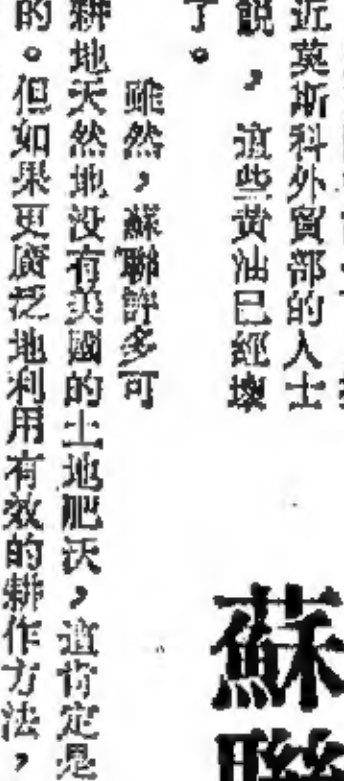 近莫斯科外貿部的人士
說，這些黄油已經壞
了。
雖然，蘇聯許多可
耕地天然地没有美國的土地肥沃，這肯定是
的。但如果更廣泛地利用有效的耕作方法，
蘇聯